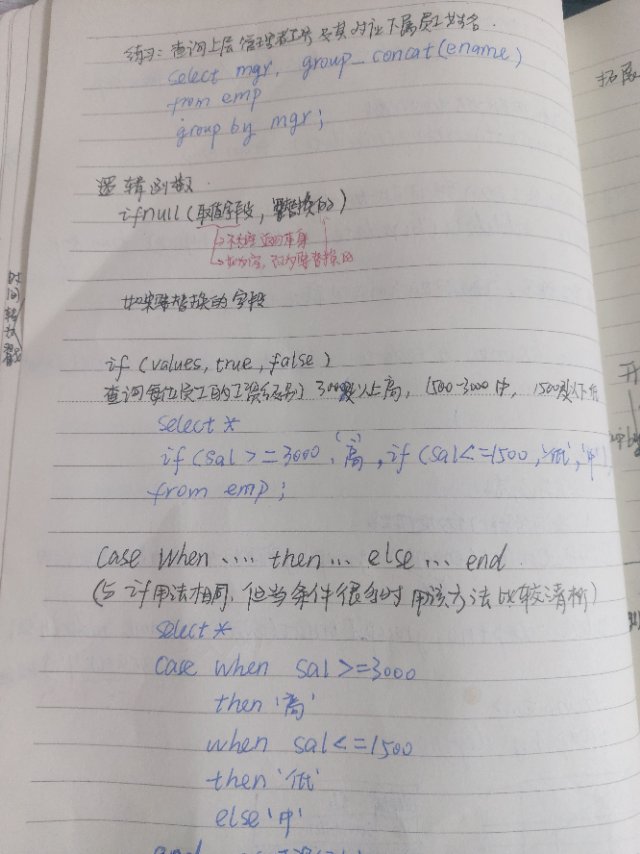 练习：查询上层管理者工号及其对应下属员工姓名.
select mgr, group_concat(ename)
from emp
group by mgr;
逻辑函数
ifnull(取值字段, 要替换的)
→不为空 返回本身
→如为空, 则为要替换的
如果要替换的字段
if (values, true, false)
查询每位员工的工资级别 3000及以上高, 1500-3000中, 1500及以下低
select *
if (sal >= 3000, '高', if (sal <= 1500, '低', '中')
from emp;
case when .... then ... else ... end.
(与 if 用法相同, 但当条件很多时 用该方法比较清晰)
select *
case when sal >= 3000
then '高'
when sal <= 1500
then '低'
else '中'
end
拓展
开